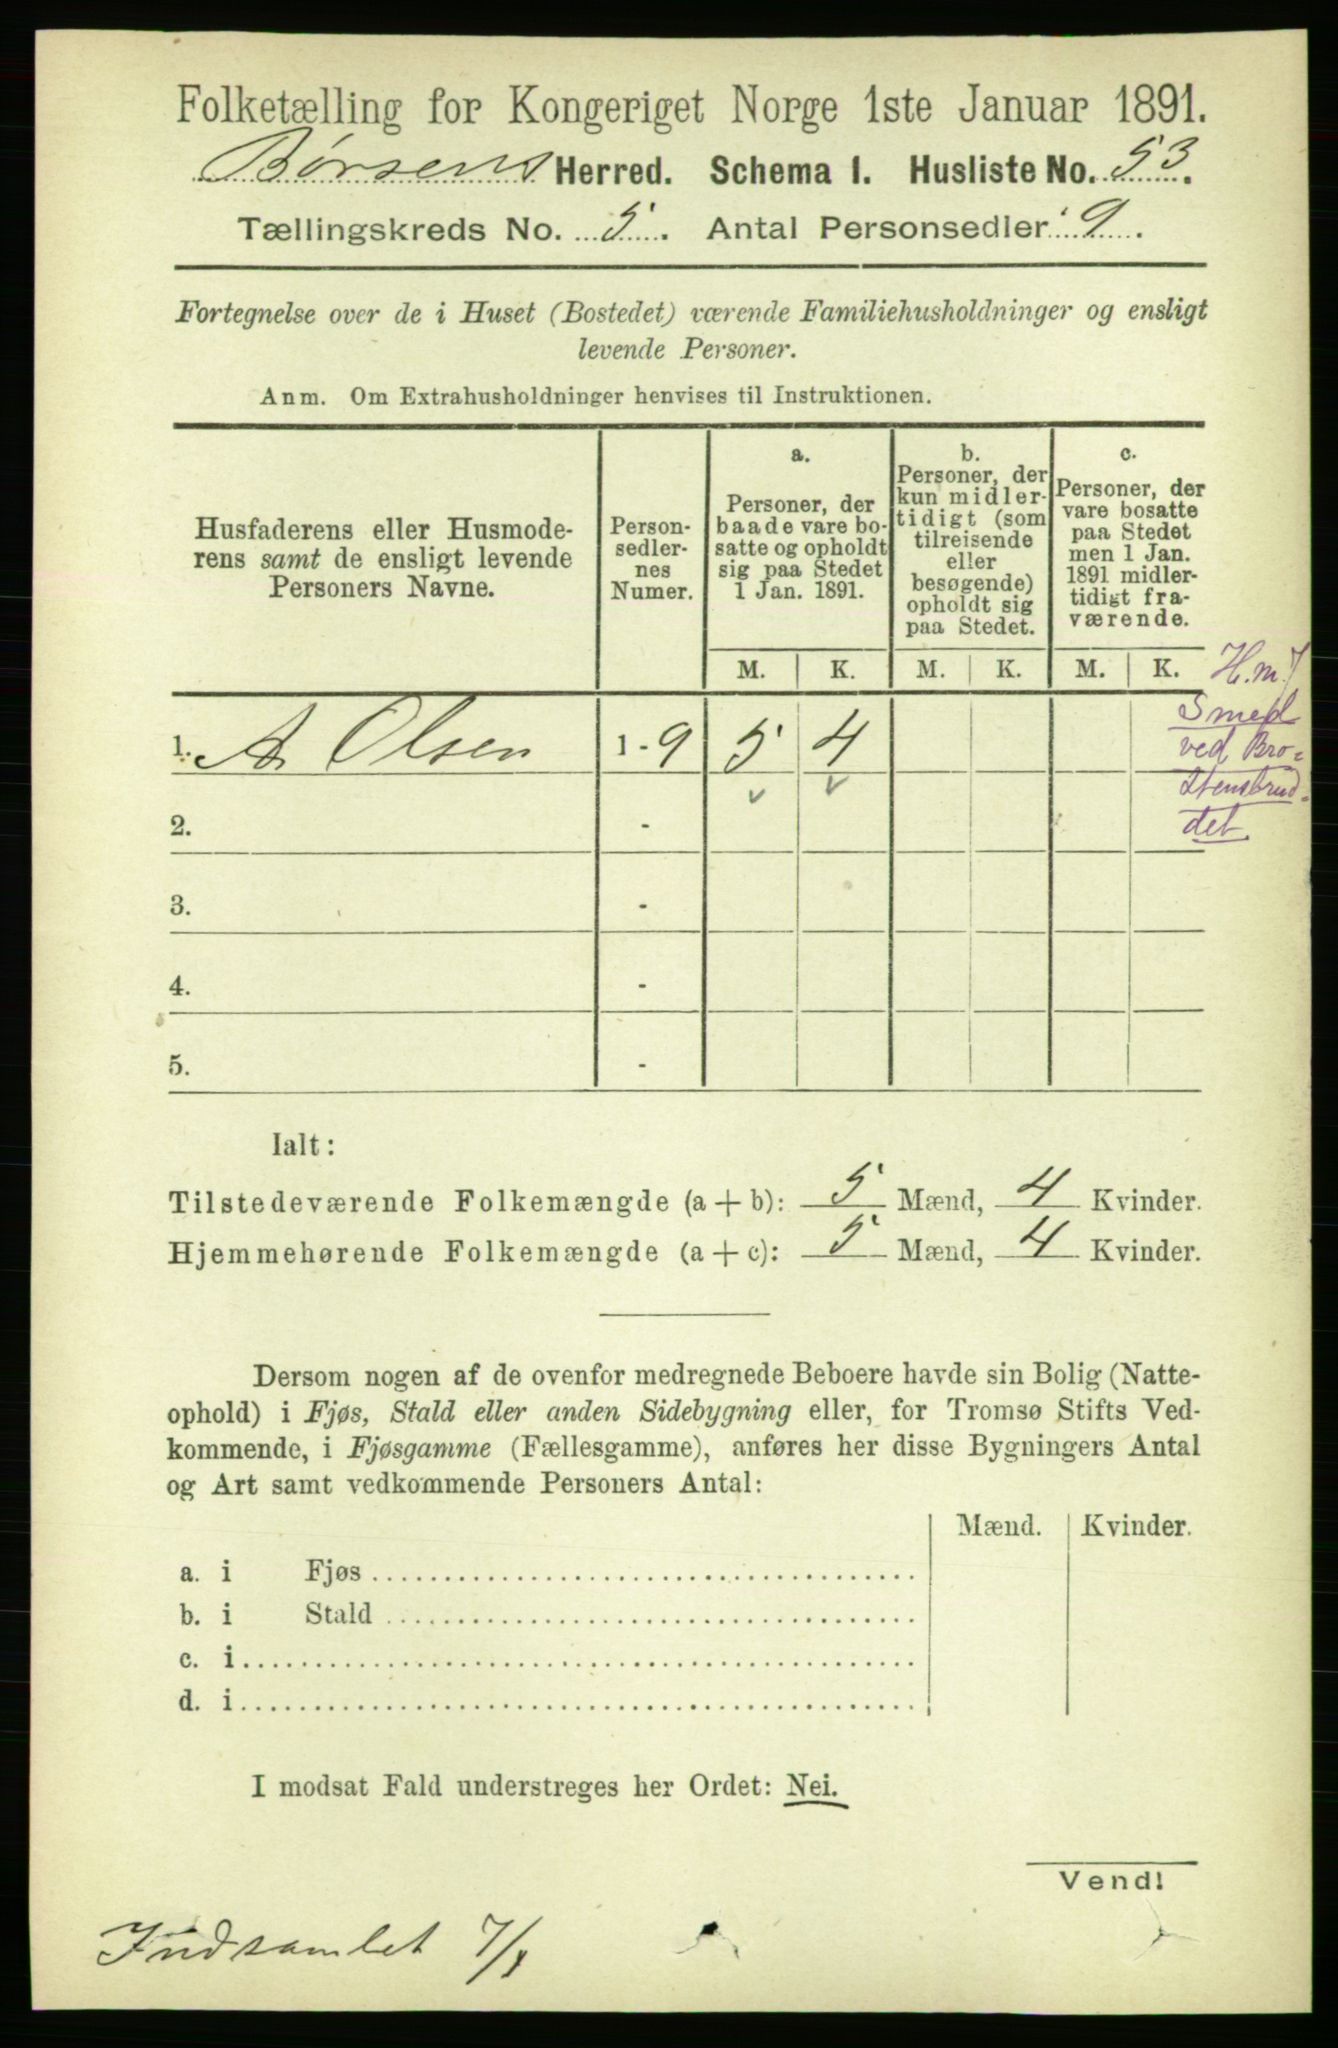 Folketælling for Kongeriget Norge 1ste Januar 1891.
Børsens Herred. Schema 1. Husliste No. 53.
Tællingskreds No. 5. Antal Personsedler 9.
Fortegnelse over de i Huset (Bostedet) værende Familiehusholdninger og ensligt
levende Personer.
Anm. Om Extrahusholdninger henvises til Instruktionen.
Husfaderens eller Husmode-
rens samt de ensligt levende
Personers Navne.
Person-
sedler-
nes
Numer.
a.
Personer, der
baade vare bo-
satte og opholdt
sig paa Stedet
1 Jan. 1891.
b.
Personer, der
kun midler-
tidigt (som
tilreisende
eller
besøgende)
opholdt sig
paa Stedet.
c.
Personer, der
vare bosatte
paa Stedet
men 1 Jan.
1891 midler-
tidigt fra-
værende.
M. K. M. K. M. K.
H.m.
Smed
ved Bro-
Stensbrud-
det.
1. A. Olsen 1 - 9 5 4
2. -
3. -
4. -
5. -
Ialt:
Tilstedeværende Folkemængde (a + b): 5 Mænd, 4 Kvinder.
Hjemmehørende Folkemængde (a + c): 5 Mænd, 4 Kvinder.
Dersom nogen af de ovenfor medregnede Beboere havde sin Bolig (Natte-
ophold) i Fjøs, Stald eller anden Sidebygning eller, for Tromsø Stifts Ved-
kommende, i Fjøsgamme (Fællesgamme), anføres her disse Bygningers Antal
og Art samt vedkommende Personers Antal:
Mænd. Kvinder.
a. i Fjøs
b. i Stald
c. i
d. i
I modsat Fald understreges her Ordet: Nei.
Vend!
Indsamlet 7/1